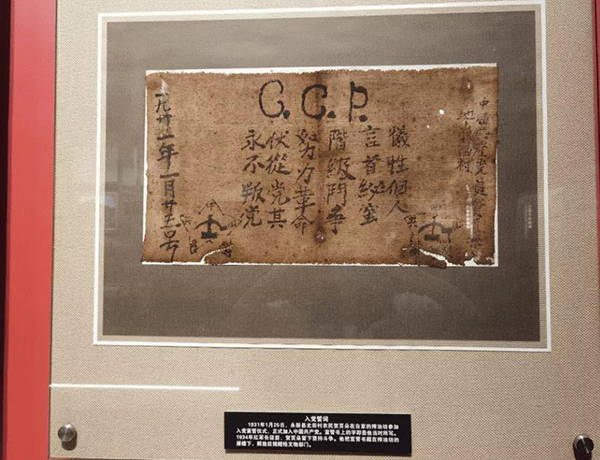 C.C.P.
中國共產党員
犧牲個人
言首秘蜜
階級鬥争
努力革命
伏從党其
永不叛党
一九卅一年一月廿五号
入党誓词
1931年1月25日，永新县北田村农民贺页朵在自家的榨油坊参加
入党宣誓仪式，正式加入中国共产党。宣誓书上的字即是他当时所写。
1934年红军长征后，贺页朵留下坚持斗争。他把宣誓书藏在榨油坊的
屋檐下，解放后捐赠给文物部门。